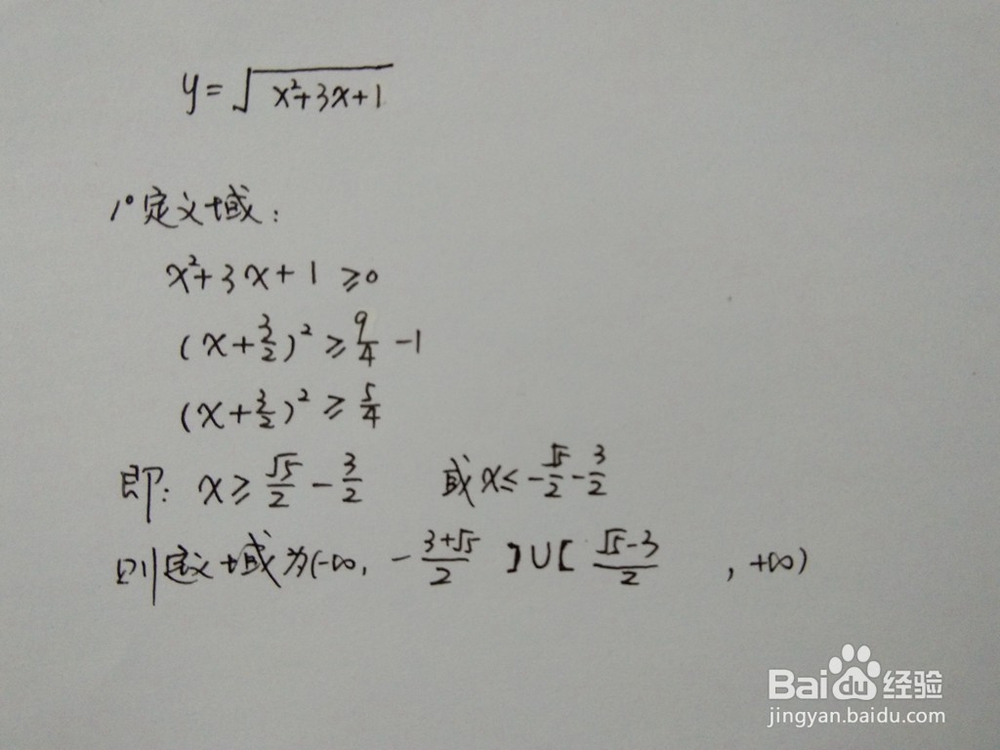 y=√(x²+3x+1)
1°定义域：
x²+3x+1≥0
(x+3/2)²≥9/4-1
(x+3/2)²≥5/4
即：x≥√5/2-3/2 或x≤-√5/2-3/2
则定义域为(-∞, -(3+√5)/2]∪[(√5-3)/2, +∞)
Baidu经验
jingyan.baidu.com